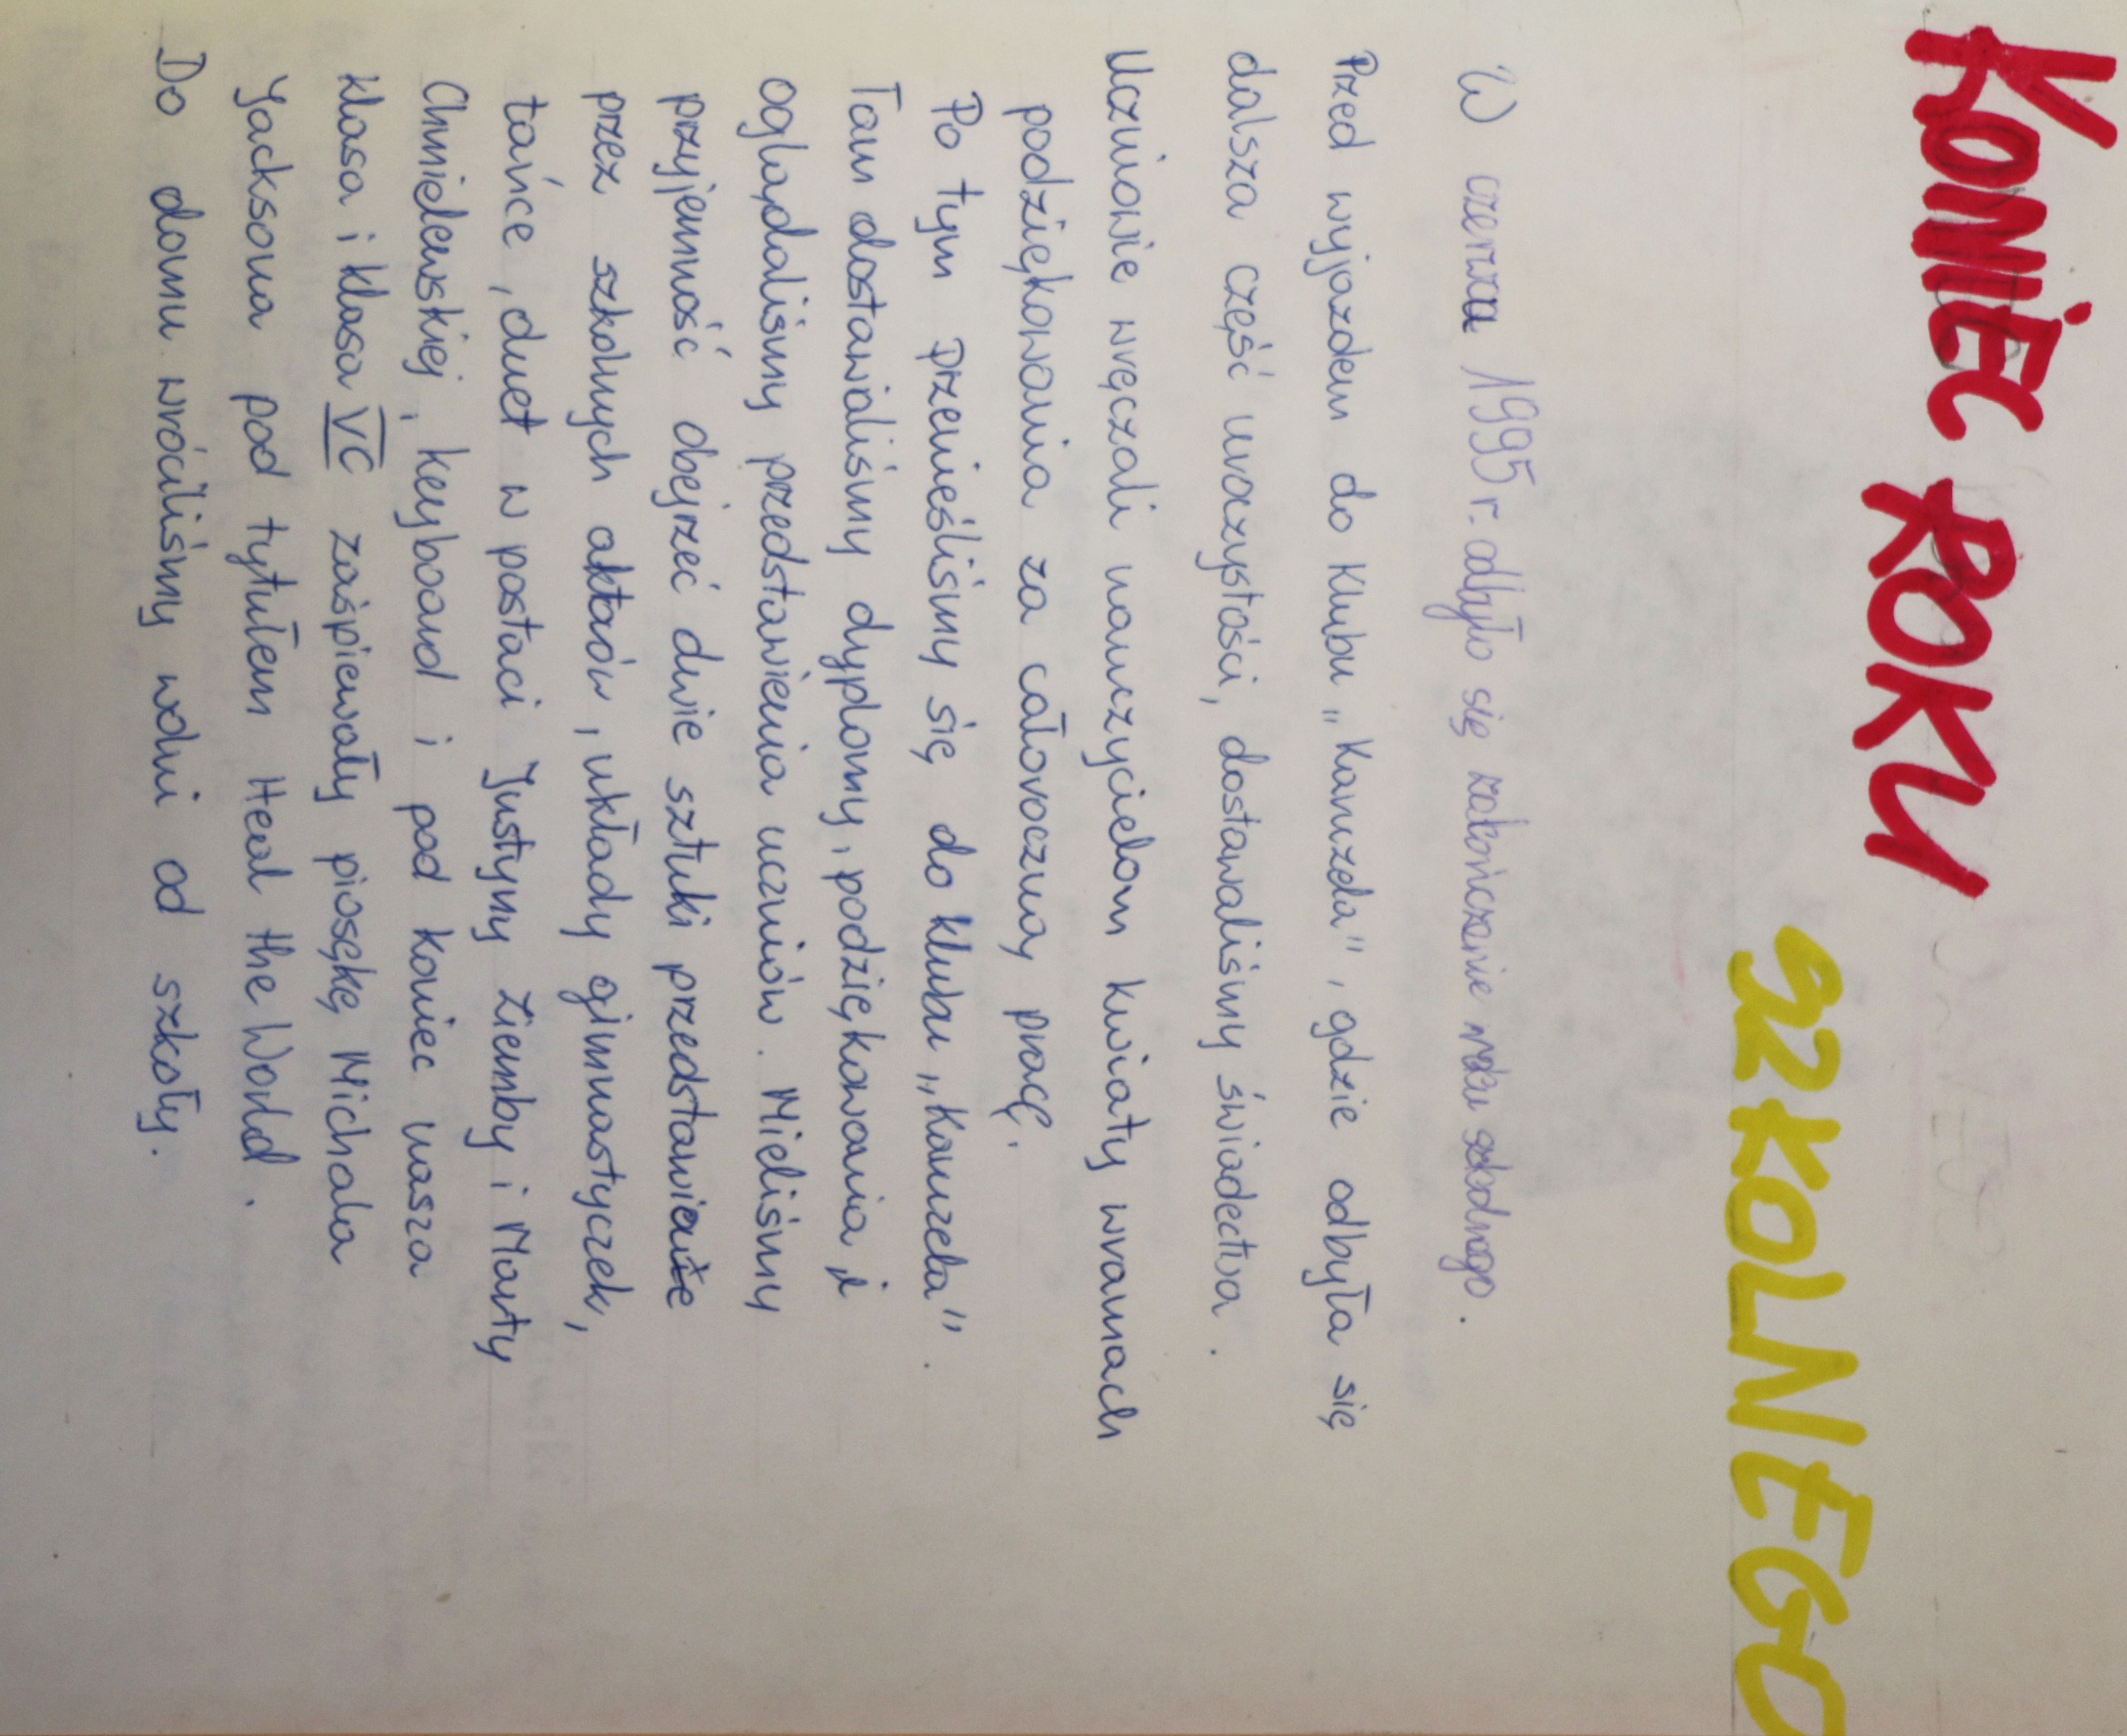 KONIEC ROKU
SZKOLNEGO
W czerwcu 1995 r. odbyło się zakończenie roku szkolnego.
Przed wyjazdem do Klubu „Karuzela", gdzie odbyła się
dalsza część uroczystości, dostawaliśmy świadectwa.
Uczniowie wręczali nauczycielom kwiaty wramach
podziękowania za całoroczną pracę.
Po tym przenieśliśmy się do klubu „Karuzela".
Tam dostawialiśmy dyplomy, podziękowania i
oglądaliśmy przedstawienia uczniów. Mieliśmy
przyjemność obejrzeć dwie sztuki przedstawienie
przez szkolnych aktorów, układy gimnastyczek,
tańce, duet w postaci Justyny Ziemby i Marty
Chmielewskiej, keyboard i pod koniec nasza
klasa i klasa VC zaśpiewały piosękę Michala
Jacksona pod tytułem Heal the World.
Do domu wróciliśmy wolni od szkoły.